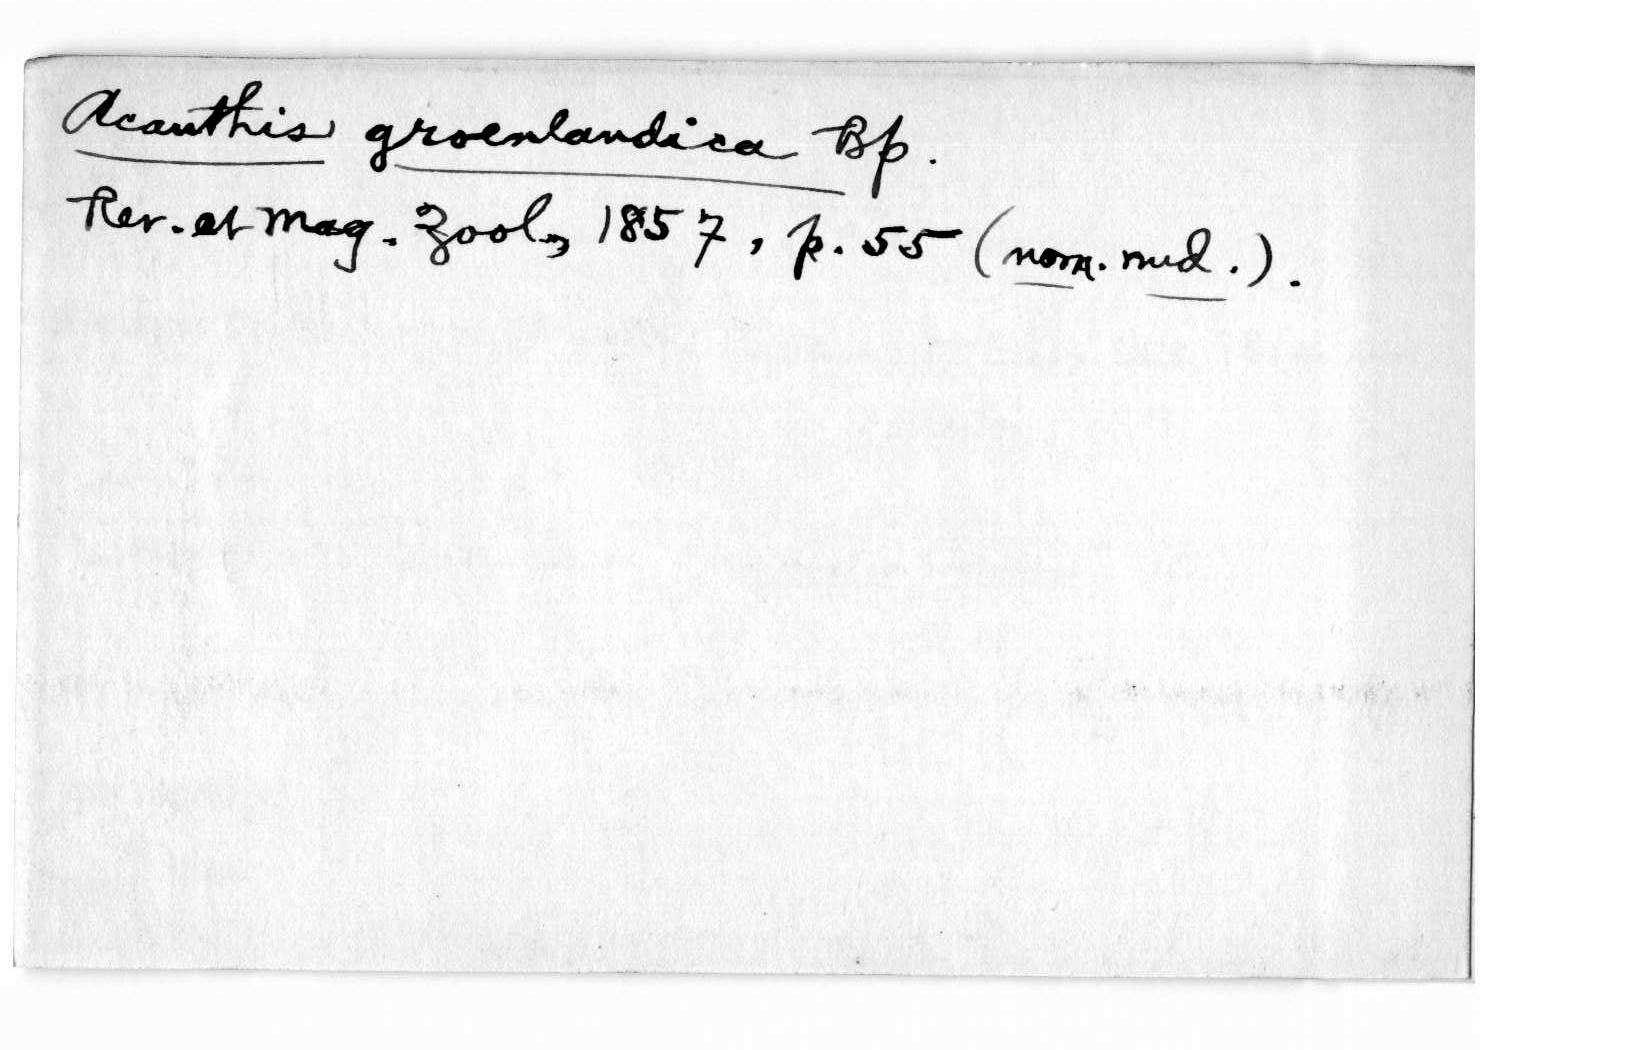 Acanthis groenlandica Bp.
Rev. et Mag. Zool., 1857, p. 55 (nom. nud.).